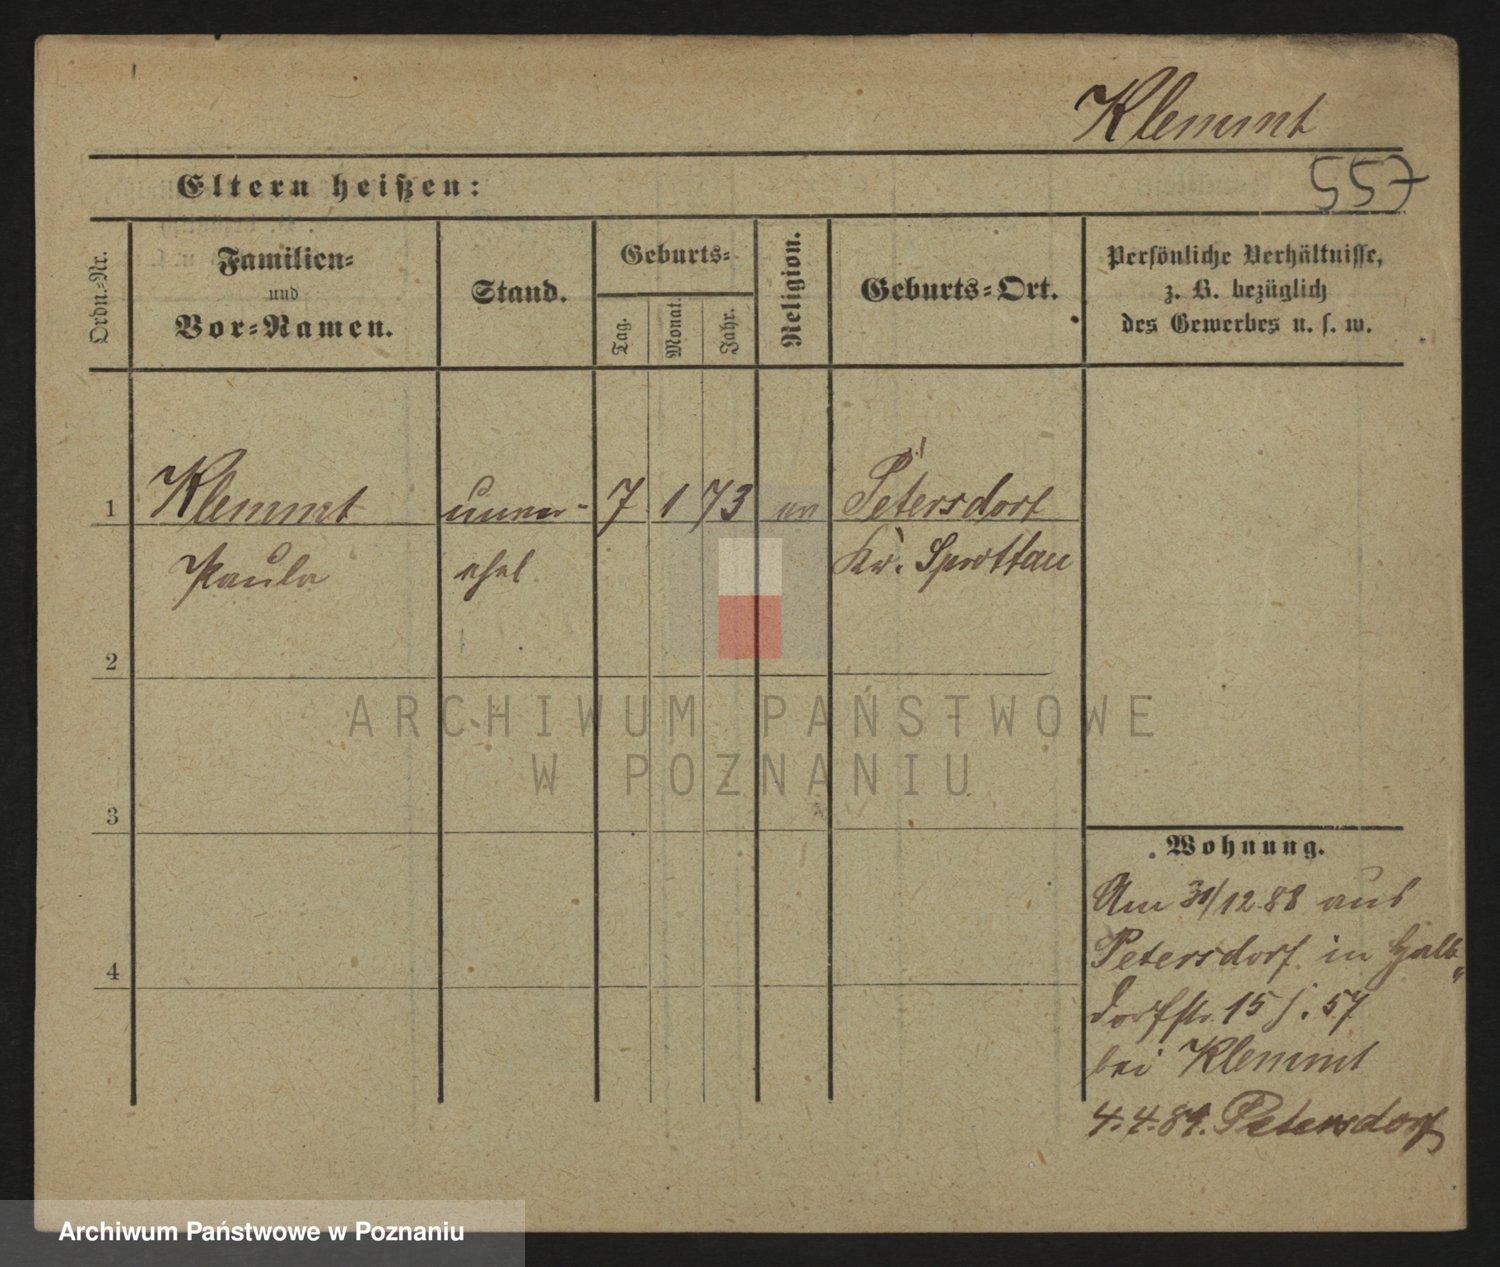 Klemmt
557
Eltern heißen:
Ordn.-Nr.
Familien-
und
Vor-Namen.
Stand.
Geburts-
Tag.
Monat.
Jahr.
Religion.
Geburts-Ort.
Persönliche Verhältnisse,
z. B. bezüglich
des Gewerbes u. s. w.
1 Klemmt unver- 7 1 73 Petersdorf
Paula ehel Kr. Sprottau
2
3
4
Wohnung.
Am 31/12.88 aus
Petersdorf in Halb-
dorfstr. 15 57
bei Klemmt
4.4.89. Petersdorf
ARCHIWUM PAŃSTWOWE
W POZNANIU
Archiwum Państwowe w Poznaniu